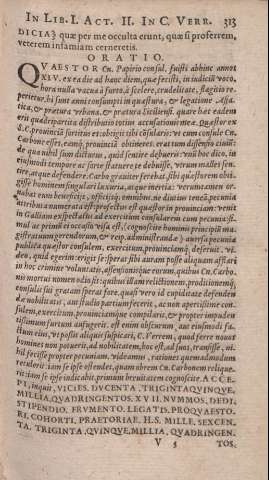 IN LIB. I. ACT. II. IN C. VERR. 313
DICIAq́; quæ per me occulta erunt, quæ si proferrem,
veterem infamiam cerneretis.
ORATIO.
QVAESTOR Cn. Papirio consul. fuisti abhinc annos
XIV. ex ea die ad hanc diem, quæ fecisti, in iudiciũ voco.
hora nulla vacua à furto, à scelere, crudelitate, flagitio re-
perietur. hi sunt anni consumpti in quæstura, & legatione Asia-
tica, & prætura vrbana, & prætura Siciliensi. quare hæc eadem
erit quadripartita distributio totius accusationis meæ. Quæstor ex
S. C. prouinciã sortitus es: obtigit tibi cõsularis: vt cum consule Cn.
Carbone esses, eamq́; prouinciã obtineres. erat tum dissensio ciuiũ:
de qua nihil sum dicturus, quid sentire debueris: vnũ hoc dico, in
eiusmodi tempore ac sorte statuere te debuisse, vtrum malles sen-
tire, atque defendere. Carbo grauiter ferebat, sibi quæstorem obti-
gisse hominem singulari luxuria, atque inertia: verumtamen or-
nabat eum beneficiis, officiisq́; omnibus. ne diutius teneã, pecunia
attributa, numerata est: profectus est quæstor in prouinciam: venit
in Galliam exspectatus ad exercitum consularem cum pecunia: si-
mul ac primũ ei occasio visa est, (cognoscite hominis principiũ ma-
gistratuum gerendorum, & reip. administrandæ) auersa pecunia
publica quæstor consulem, exercitum, prouinciamq́; deseruit. vi-
deo, quid egerim: erigit se: sperat sibi auram posse aliquam afflari
in hoc crimine voluntatis, assensionisque eorum, quibus Cn. Carbo-
nis mortui nomen odio sit: quibus illam relictionem, proditionemq́;
consulis sui gratam sperat fore. quasi vero id cupiditate defenden-
dæ nobilitatis, aut studio partium fecerit, ac non apertissime con-
sulem, exercitum, prouinciamque compilarit, & propter impuden-
tissimum furtum aufugerit. est enim obscurum, aut eiusmodi fa-
ctum eius, vt possit aliquis suspicari, C. Verrem, quod ferre nouos
homines non potuerit, ad nobilitatem, hoc est, ad suos, transisse, ni-
hil fecisse propter pecuniam. videamus, rationes quemadmodum
retulerit: iam se ipse ostendet, quam obrem Cn. Carbonem relique-
rit: iam se ipse indicabit. primum breuitatem cognoscite. ACCE-
PI, inquit, VICIES, DVCENTA, TRIGINTAQVINQVE,
MILLIA, QVADRINGENTOS. XVII. NVMMOS, DEDI,
STIPENDIO. FRVMENTO. LEGATIS, PROQVAESTO-
RI, COHORTI, PRAETORIAE. H.S. MILLE, SEXCEN-
TA, TRIGINTA, QVINQVE, MILLIA, QVADRINGEN-
V 5 TOS,